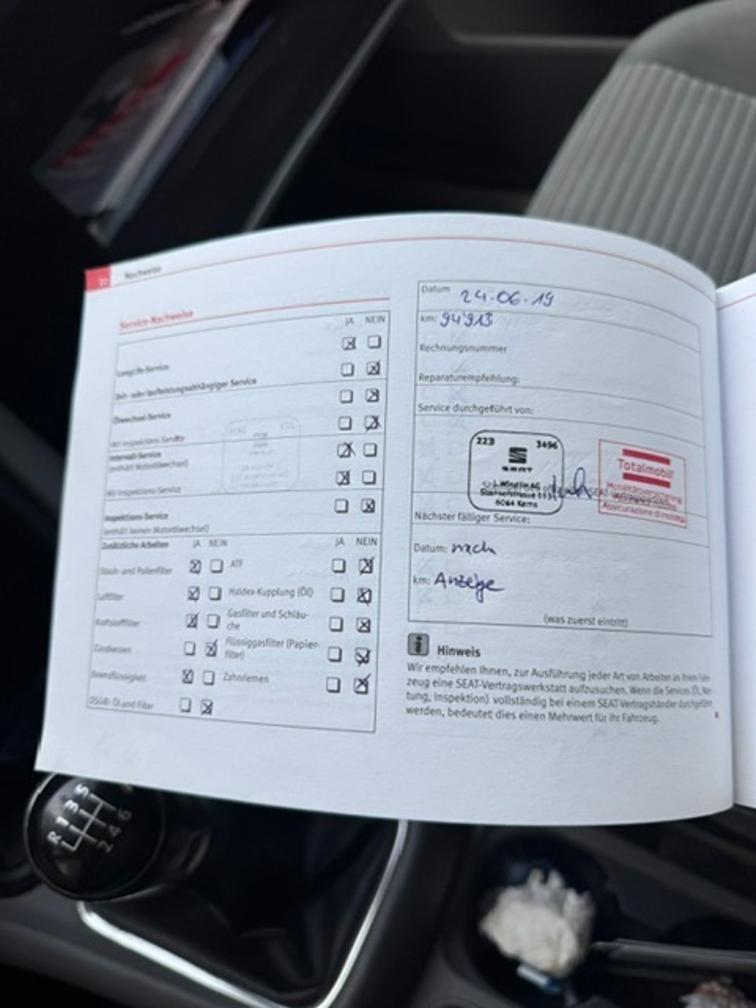 Nachweise
Service-Nachweise
JA NEIN
LongLife-Service
Zeit- oder laufleistungsabhängiger Service
Ölwechsel-Service
Mit Inspektions-Service
Intervall-Service
(enthält Motorölwechsel)
Mit Inspektions-Service
Inspektions-Service
(enthält keinen Motorölwechsel)
Zusätzliche Arbeiten JA NEIN JA NEIN
Staub- und Pollenfilter ATF
Luftfilter Haldex-Kupplung (Öl)
Kraftstofffilter Gasfilter und Schläu-
che
Zündkerzen Flüssiggasfilter (Papier-
filter)
Bremsflüssigkeit Zahnriemen
DSG®: Öl und Filter
Datum 24.06.19
km: 94'913
Rechnungsnummer
Reparaturempfehlung:
Service durchgeführt von:
223 3496
SEAT
6064 Kerns
Totalmobil!
Mobilitätsversicherung
Assicurazione di mobilità
Nächster fälliger Service:
Datum: nach
km: Anzeige
(was zuerst eintritt)
i Hinweis
Wir empfehlen Ihnen, zur Ausführung jeder Art von Arbeiten an Ihrem Fahr-
zeug eine SEAT-Vertragswerkstatt aufzusuchen. Wenn die Services (Öl, War-
tung, Inspektion) vollständig bei einem SEAT-Vertragshändler durchgeführt
werden, bedeutet dies einen Mehrwert für Ihr Fahrzeug.
1 3 5
R 2 4 6